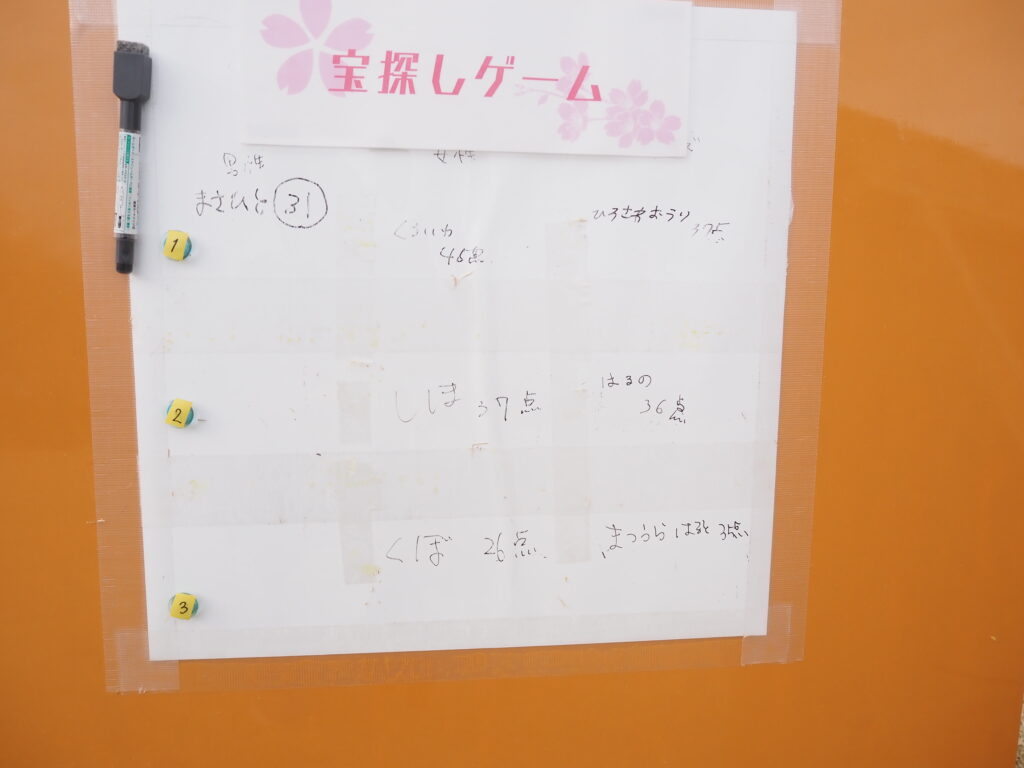 宝探しゲーム
男性
女性
まさひと 31
1
45点
37点
2
しほ 37点
はるの
36点
くぼ 26点
まつうら はると 35点
3